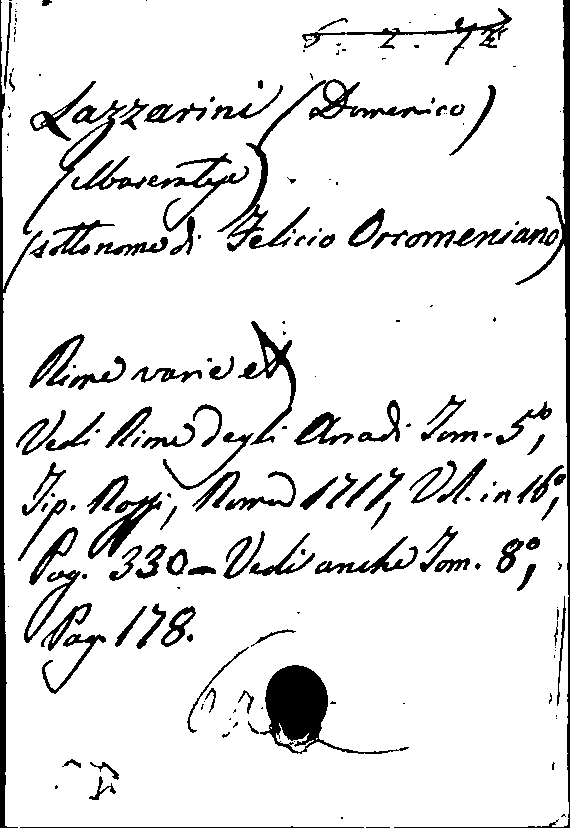 6. 2. 72
Lazzarini (Domenico)
(Maceratese)
(sotto nome di Felicio Orcomeniano)
Rime varie
Vedi Rime degli Arcadi Tom. 5º,
Tip. Rossi, Roma 1717, Vol. in 16º,
Pag. 330 - Vedi anche Tom. 8º,
Pag. 178.